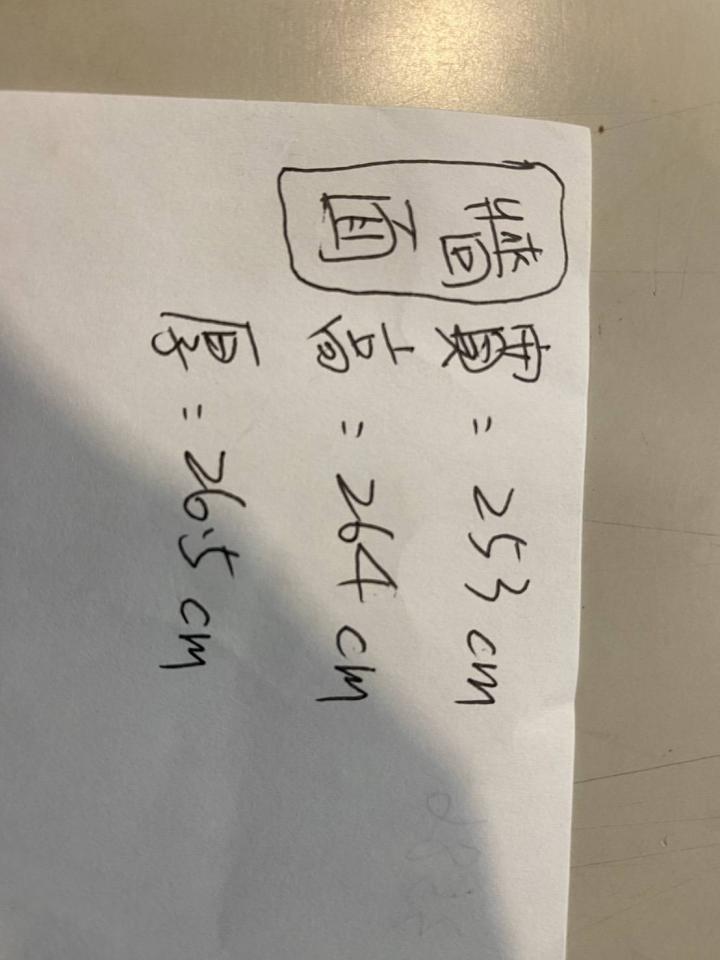 牆面
寬 = 253 cm
高 = 264 cm
厚 = 26.5 cm